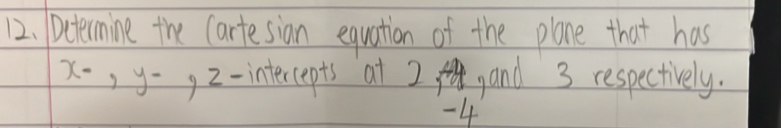 12. Determine the Cartesian equation of the plane that has
x-, y-, z-intercepts at 2, , and 3 respectively.
-4